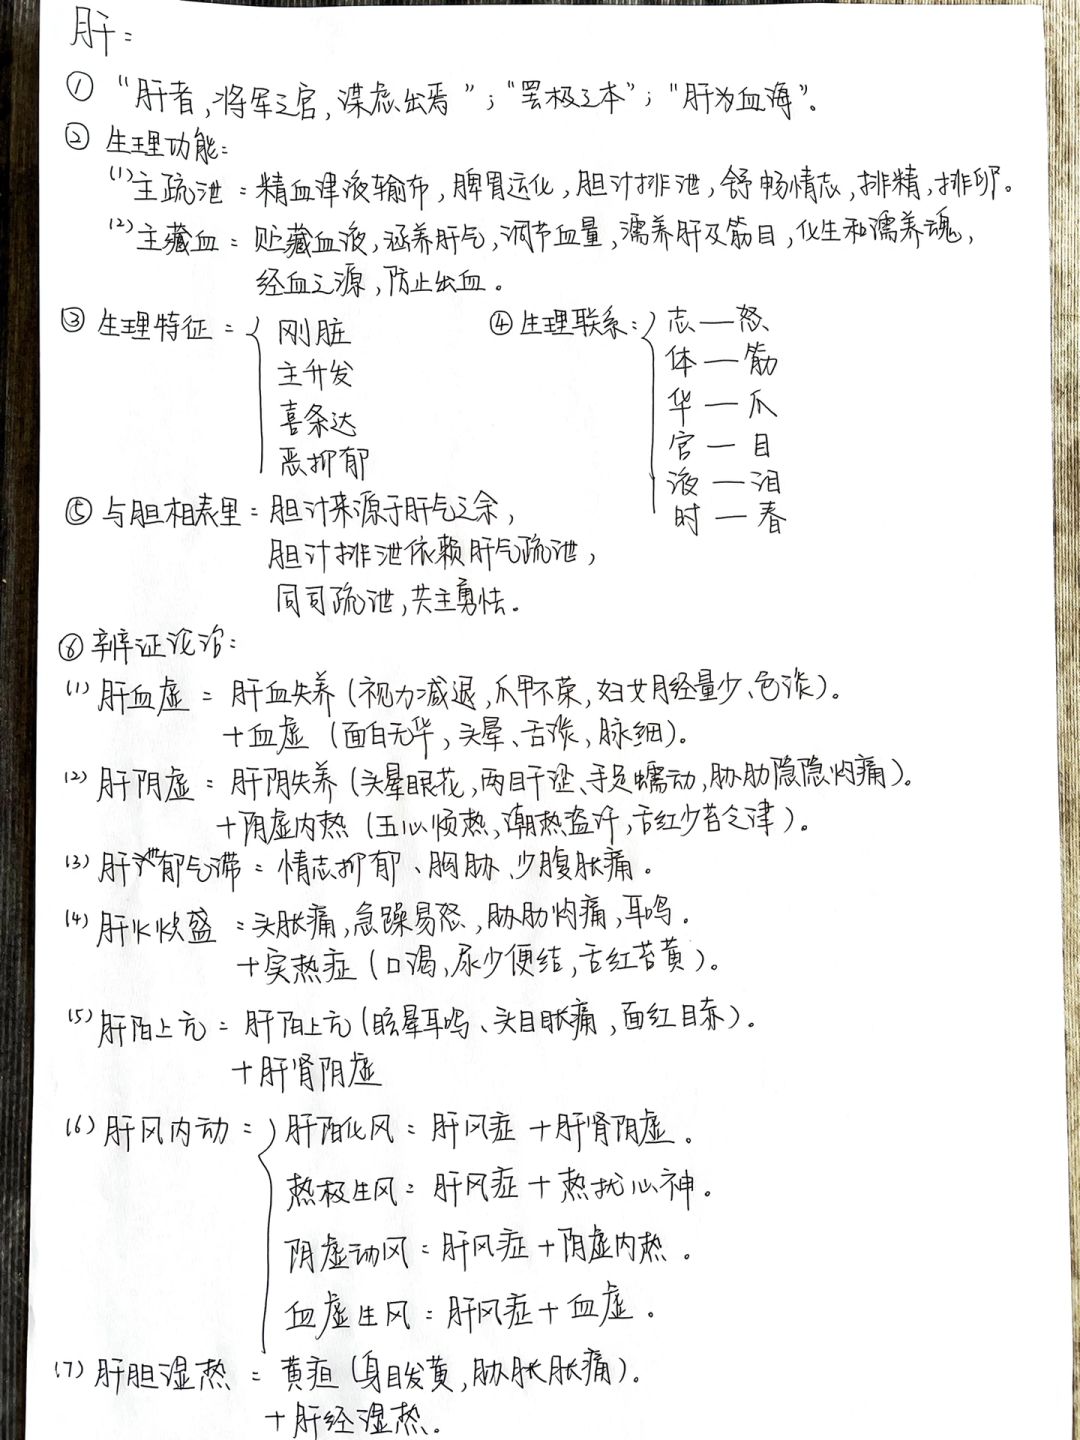 肝：
① “肝者,将军之官,谋虑出焉”；“罢极之本”；“肝为血海”。
② 生理功能：
(1)主疏泄：精血津液输布,脾胃运化,胆汁排泄,舒畅情志,排精,排卵。
(2)主藏血：贮藏血液,涵养肝气,调节血量,濡养肝及筋目,化生和濡养魂,
经血之源,防止出血。
③ 生理特征：
刚脏
主升发
喜条达
恶抑郁
④ 生理联系：
志—怒
体—筋
华—爪
官—目
液—泪
时—春
⑤ 与胆相表里：胆汁来源于肝气之余,
胆汁排泄依赖肝气疏泄,
同司疏泄,共主勇怯.
⑥ 辨证论治：
(1) 肝血虚 = 肝血失养 (视力减退,爪甲不荣,妇女月经量少、色淡)。
+血虚 (面白无华,头晕、舌淡,脉细)。
(2) 肝阴虚 = 肝阴失养 (头晕眼花,两目干涩、手足蠕动,胁肋隐隐灼痛)。
+阴虚内热 (五心烦热,潮热盗汗,舌红少苔乏津)。
(3) 肝郁气滞 = 情志抑郁、胸胁、少腹胀痛.
(4) 肝火炽盛 = 头胀痛,急躁易怒,胁肋灼痛,耳鸣.
+实热症 (口渴,尿少便结,舌红苔黄)。
(5) 肝阳上亢 = 肝阳上亢 (眩晕耳鸣、头目胀痛,面红目赤)。
+肝肾阴虚
(6) 肝风内动 =
肝阳化风 = 肝风症 +肝肾阴虚.
热极生风 = 肝风症 + 热扰心神.
阴虚动风 = 肝风症 +阴虚内热.
血虚生风 = 肝风症 + 血虚.
(7) 肝胆湿热 = 黄疸 (身目发黄,胁胀胀痛)。
+肝经湿热.